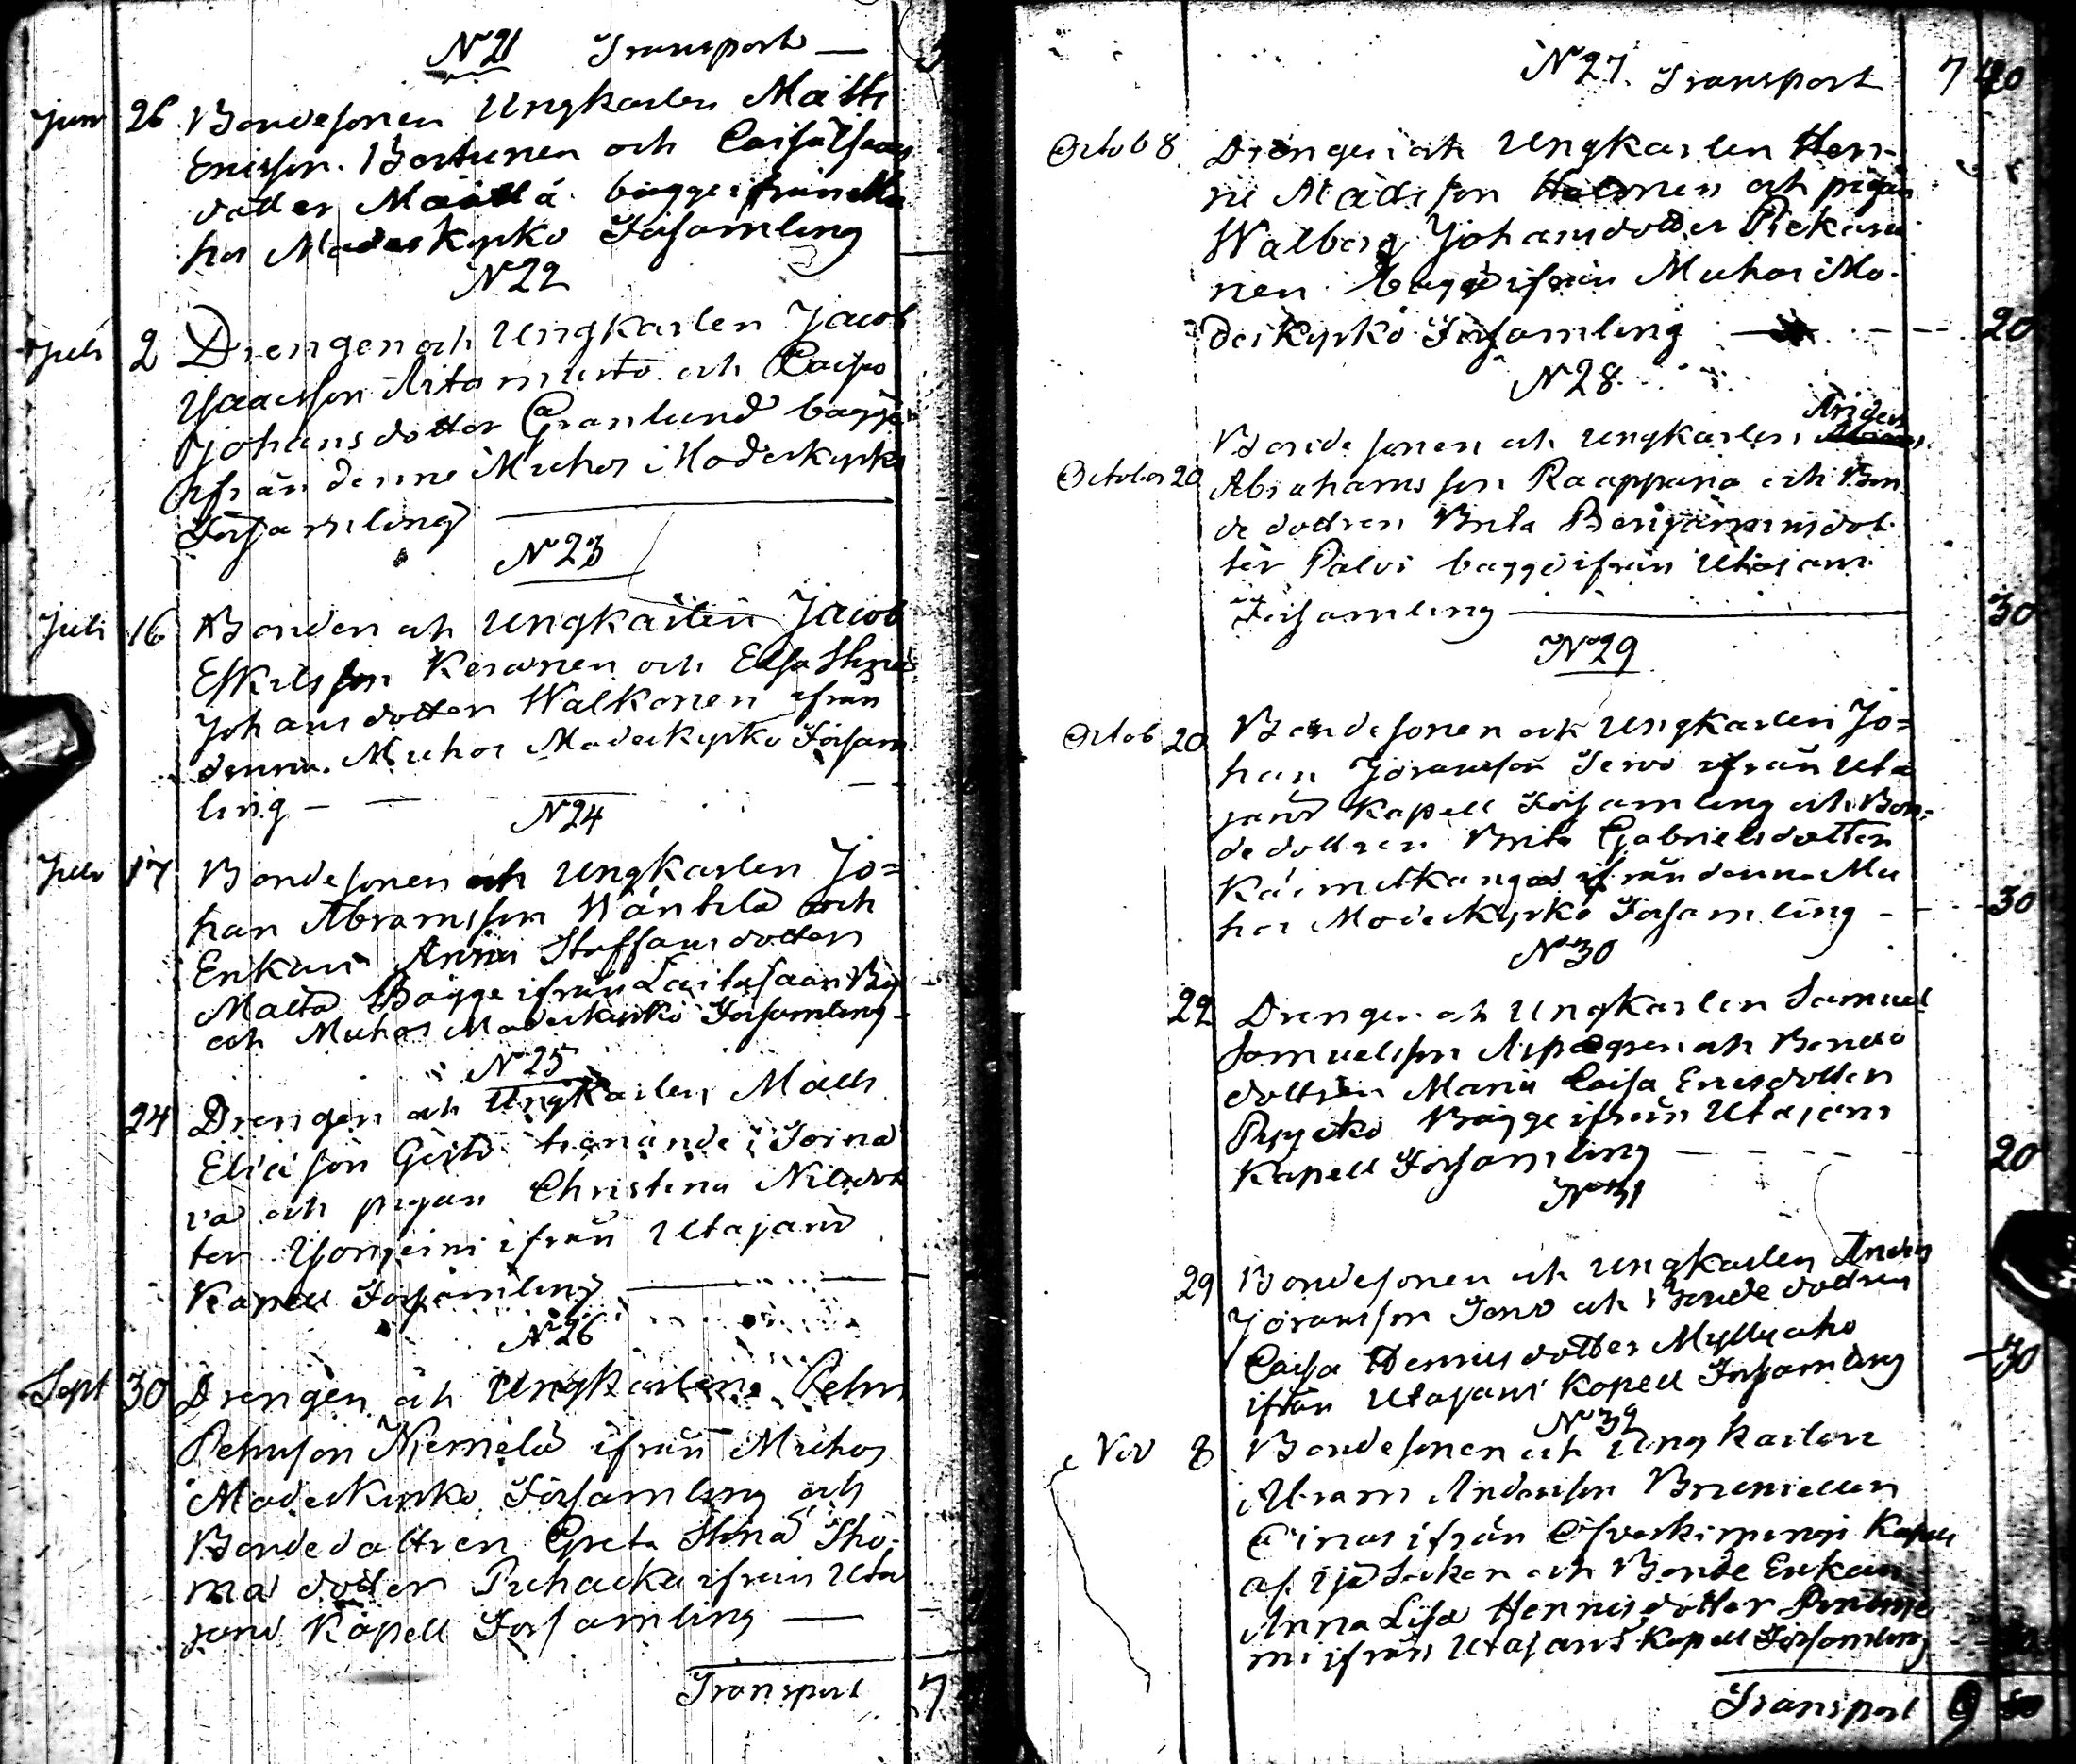 N 21 Transport
Juni 26 Bondesonen Ungkarlen Matts
Ericsson Bertunen och Caisa Isaacs
dotter Määttä bägge ifrån Mu
hos Moderkyrko Församling
N 22
Juli 2 Drengen och Ungkarlen Jacob
Isaacsson och Caisa
Johansdotter Granlund bägge
ifrån denne Muhos Moderkyrko
Församling
N 23
Juli 16 Bonden och Ungkarlen Jacob
Eskilsson Keranen och Elsa Stina
Johansdotter Walkonen ifrån
denna Muhos Moderkyrko Försam
ling
N 24
Juli 17 Bondesonen och Ungkarlen Jo=
han Abramsson Wänttilä och
Enkan Anna Staffansdotter
Matta Bägge ifrån Laitasaari By
och Muhos Moderkyrko Församling
N 25
24 Drengen och Ungkarlen Matts
Eliasson tienande i
och pigan Christina Nilsdot
ter ifrån Utajärvi
Kapell Församling
N 26
Sept 30 Drengen och Ungkarlen Pehr
Pehrson Niemelä ifrån Muhos
Moderkyrko Församling och
Bondedottren Greta Stina Tho-
ma dotter Puhacka ifrån Uta
järvi Kapell Församling
Transport 7
N 27 Transport 7 40
Octob 8 Drengen och Ungkarlen Hen-
ric Madsson Halonen och pigan
Walborg Johansdotter Piekari
nen bägge ifrån Muhos Mo-
derkyrko Församling 20
N 28
Bondesonen och Ungkarlen Anders
October 20 Abrahamsson Raappana och Bon
dedottren Brita Benjaminsdot
ter Palvi bägge ifrån Utajärvi
Församling 30
N 29
Octob 20 Bondesonen och Ungkarlen Jo=
han Jöransson Tervo ifrån Uta
järvi Kapell Församling och Bon=
dedottren Brita Gabrielsdotter
Käimetkangas ifrån denna Mu
hos Moderkyrko Församling 30
N 30
22 Drengen och Ungkarlen Samuel
Samuelsson Aspegren och Bonde
dottren Maria Caisa Ericsdotter
Bägge ifrån Utajärvi
Kapell Församling 20
N 31
29 Bondesonen och Ungkarlen Anders
Jöransson Tervo och Bondedottren
Caisa Henricsdotter Myllyaho
ifrån Utajärvi Kapell Församling 30
N 32
Nov 8 Bondesonen och Ungkarlen
Abram Andersson
ifrån Kapell
af Ijo Socken och Bonde Enkan
Anna Lisa Henricsdotter
ifrån Utajärvi Kapell Församling
Transport 9